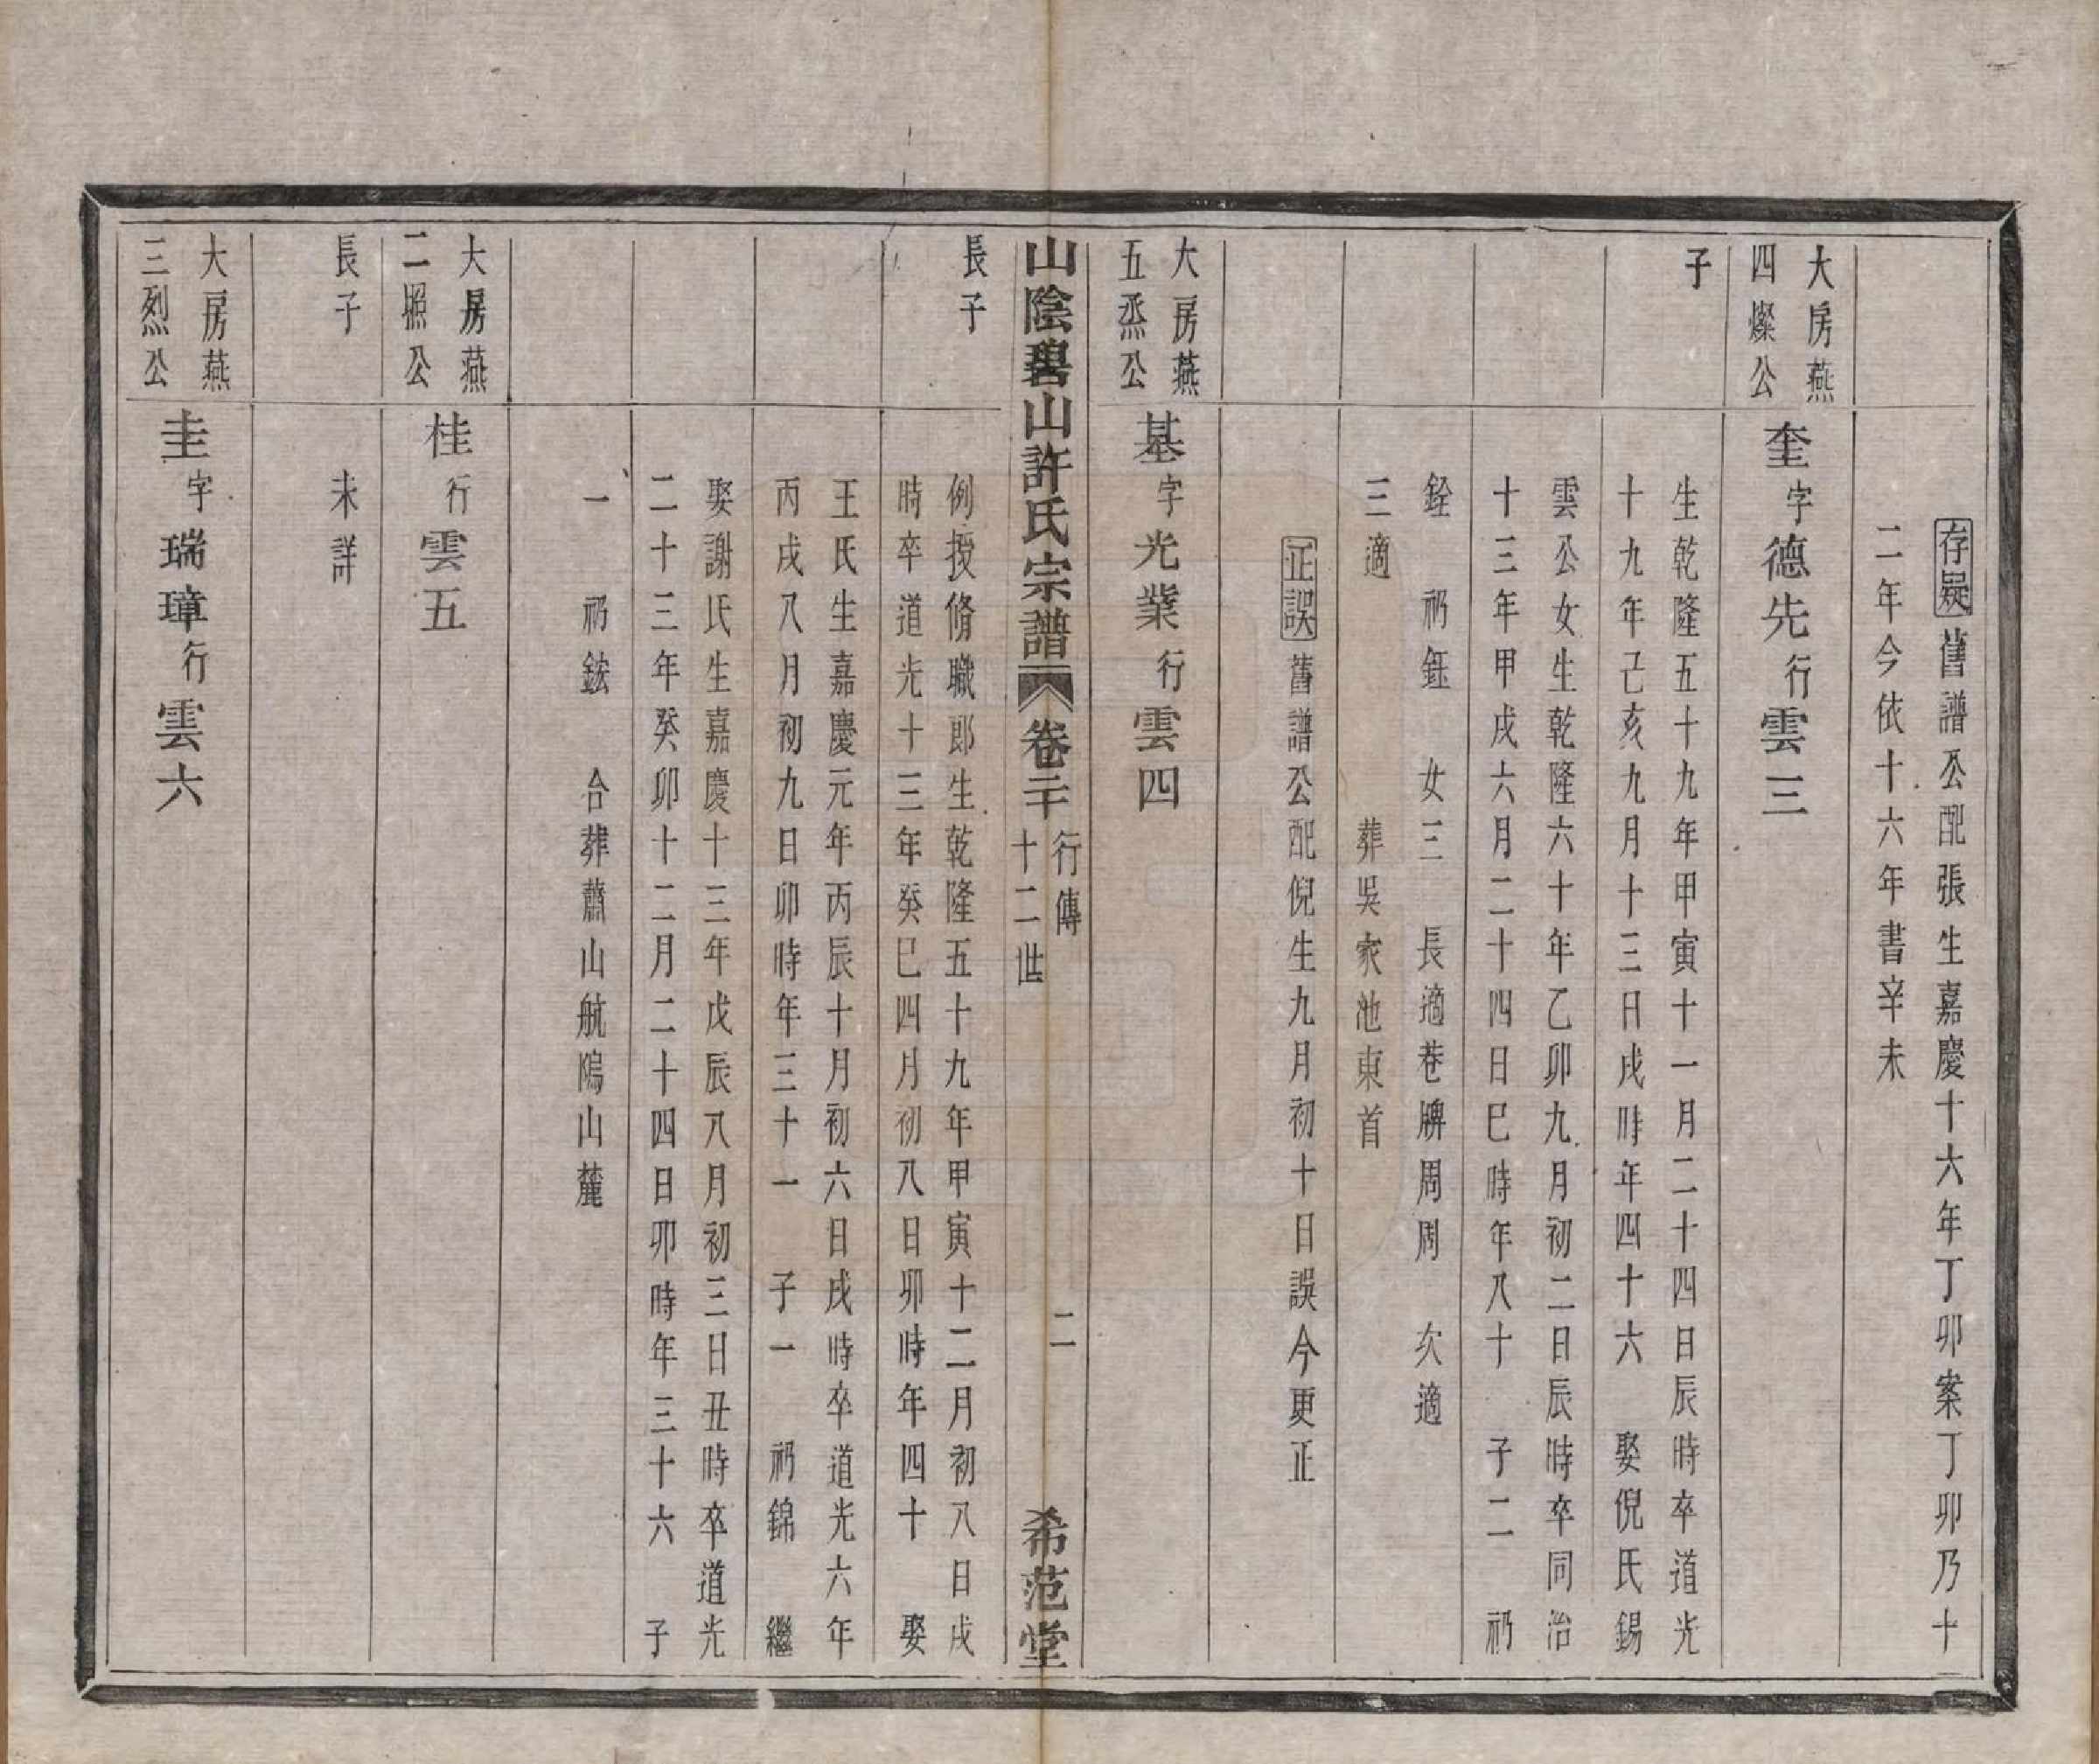 存疑舊譜公配張生嘉慶十六年丁卯案丁卯乃十
二年今依十六年書辛未
大房燕
四燦公
奎字德先行雲三
子
生乾隆五十九年甲寅十一月二十四日辰時卒道光
十九年己亥九月十三日戌時年四十六 娶倪氏錫
雲公女生乾隆六十年乙卯九月初二日辰時卒同治
十三年甲戌六月二十四日巳時年八十 子二 礽
銓 礽鈺 女三 長適巷牌周周 次適
三適 葬吳家池東首
正誤舊譜公配倪生九月初十日誤今更正
大房燕
五烝公
基字光業行雲四
山陰碧山許氏宗譜 卷二十 行傳 十二世 二 希范堂
長子
例授脩職郎生乾隆五十九年甲寅十二月初八日戌
時卒道光十三年癸巳四月初八日卯時年四十 娶
王氏生嘉慶元年丙辰十月初六日戌時卒道光六年
丙戌八月初九日卯時年三十一 子一 礽錦 繼
娶謝氏生嘉慶十三年戊辰八月初三日丑時卒道光
二十三年癸卯十二月二十四日卯時年三十六 子
一 礽鋐 合葬蕭山航隖山麓
大房燕
二照公
桂行雲五
長子
未詳
大房燕
三烈公
圭字瑞璋行雲六